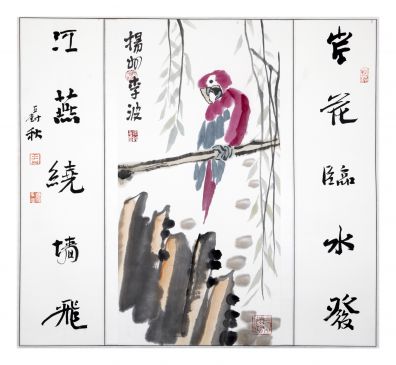 岸花臨水發
揚州李波
江燕繞墙飛
秋